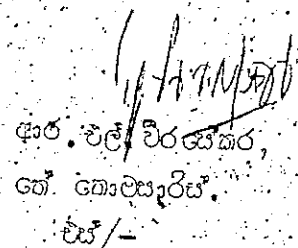 ආර්. එල්. වීරසේකර,
තේ කොමසාරිස්.
එස්/-